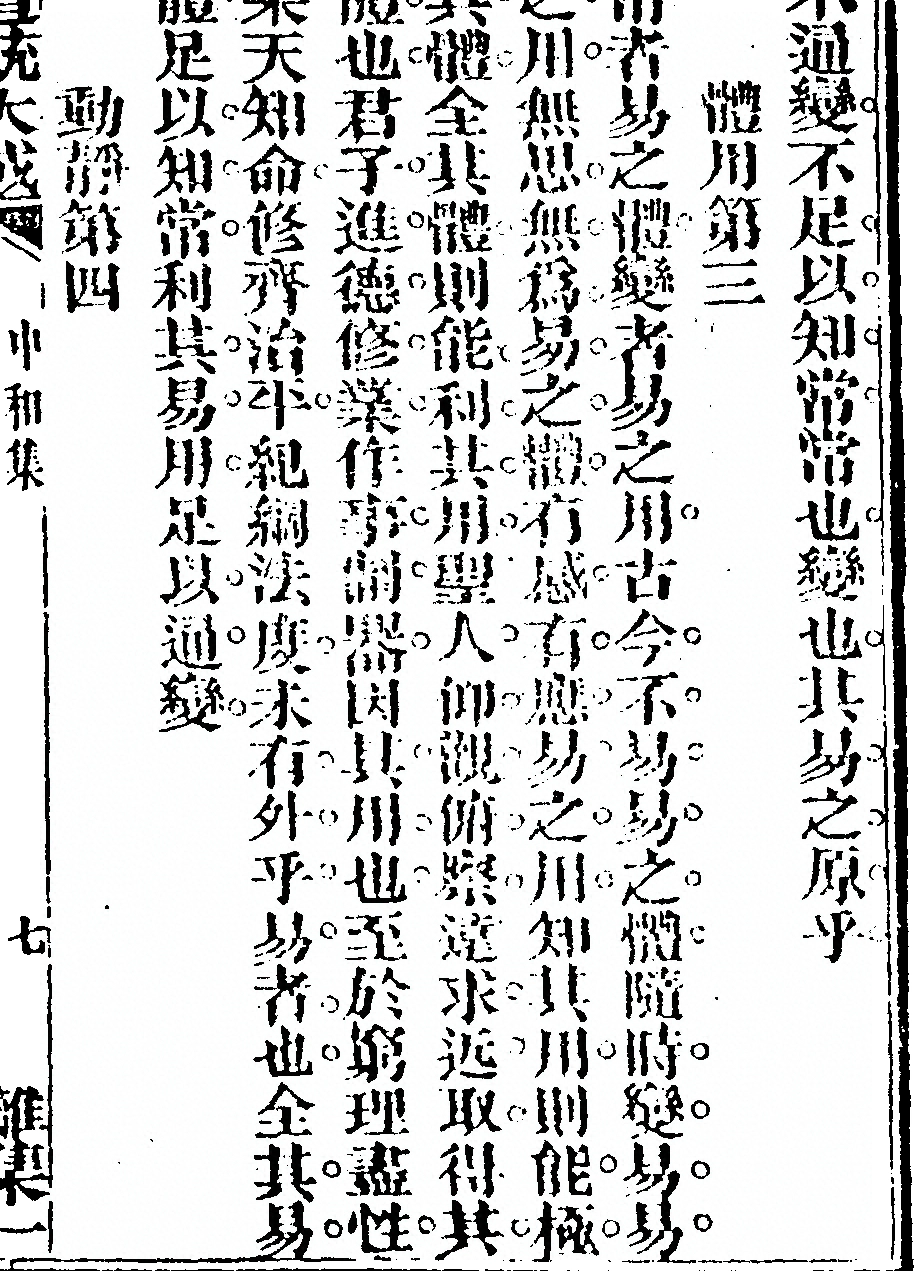 不通變不足以知常常也變也其易之原乎
體用第三
常者易之體變者易之用古今不易易之體隨時變易易
之用無思無爲易之體有感有應易之用知其用則能極
其體全其體則能利其用聖人仰觀俯察遠求近取得其
體也君子進德修業作事制器因其用也至於窮理盡性
樂天知命修齊治平紀綱法度未有外乎易者也全其易
體足以知常利其易用足以通變
動靜第四
中和集
七
雜集一